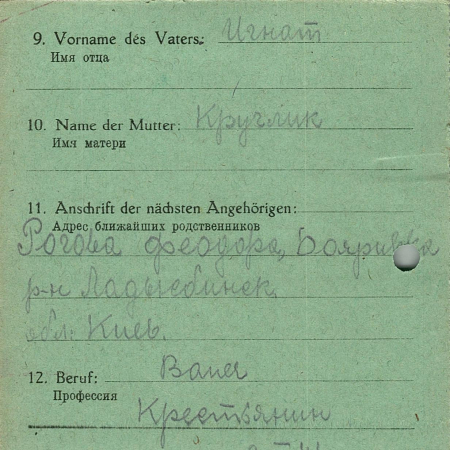 9. Vorname des Vaters: Игнат
Имя отца
10. Name der Mutter: Круглик
Имя матери
11. Anschrift der nächsten Angehörigen:
Адрес ближайших родственников
Рогова Феодора,
р-н Ладыебинск.
обл: Киев.
12. Beruf: Bauer
Профессия
Крестьянин